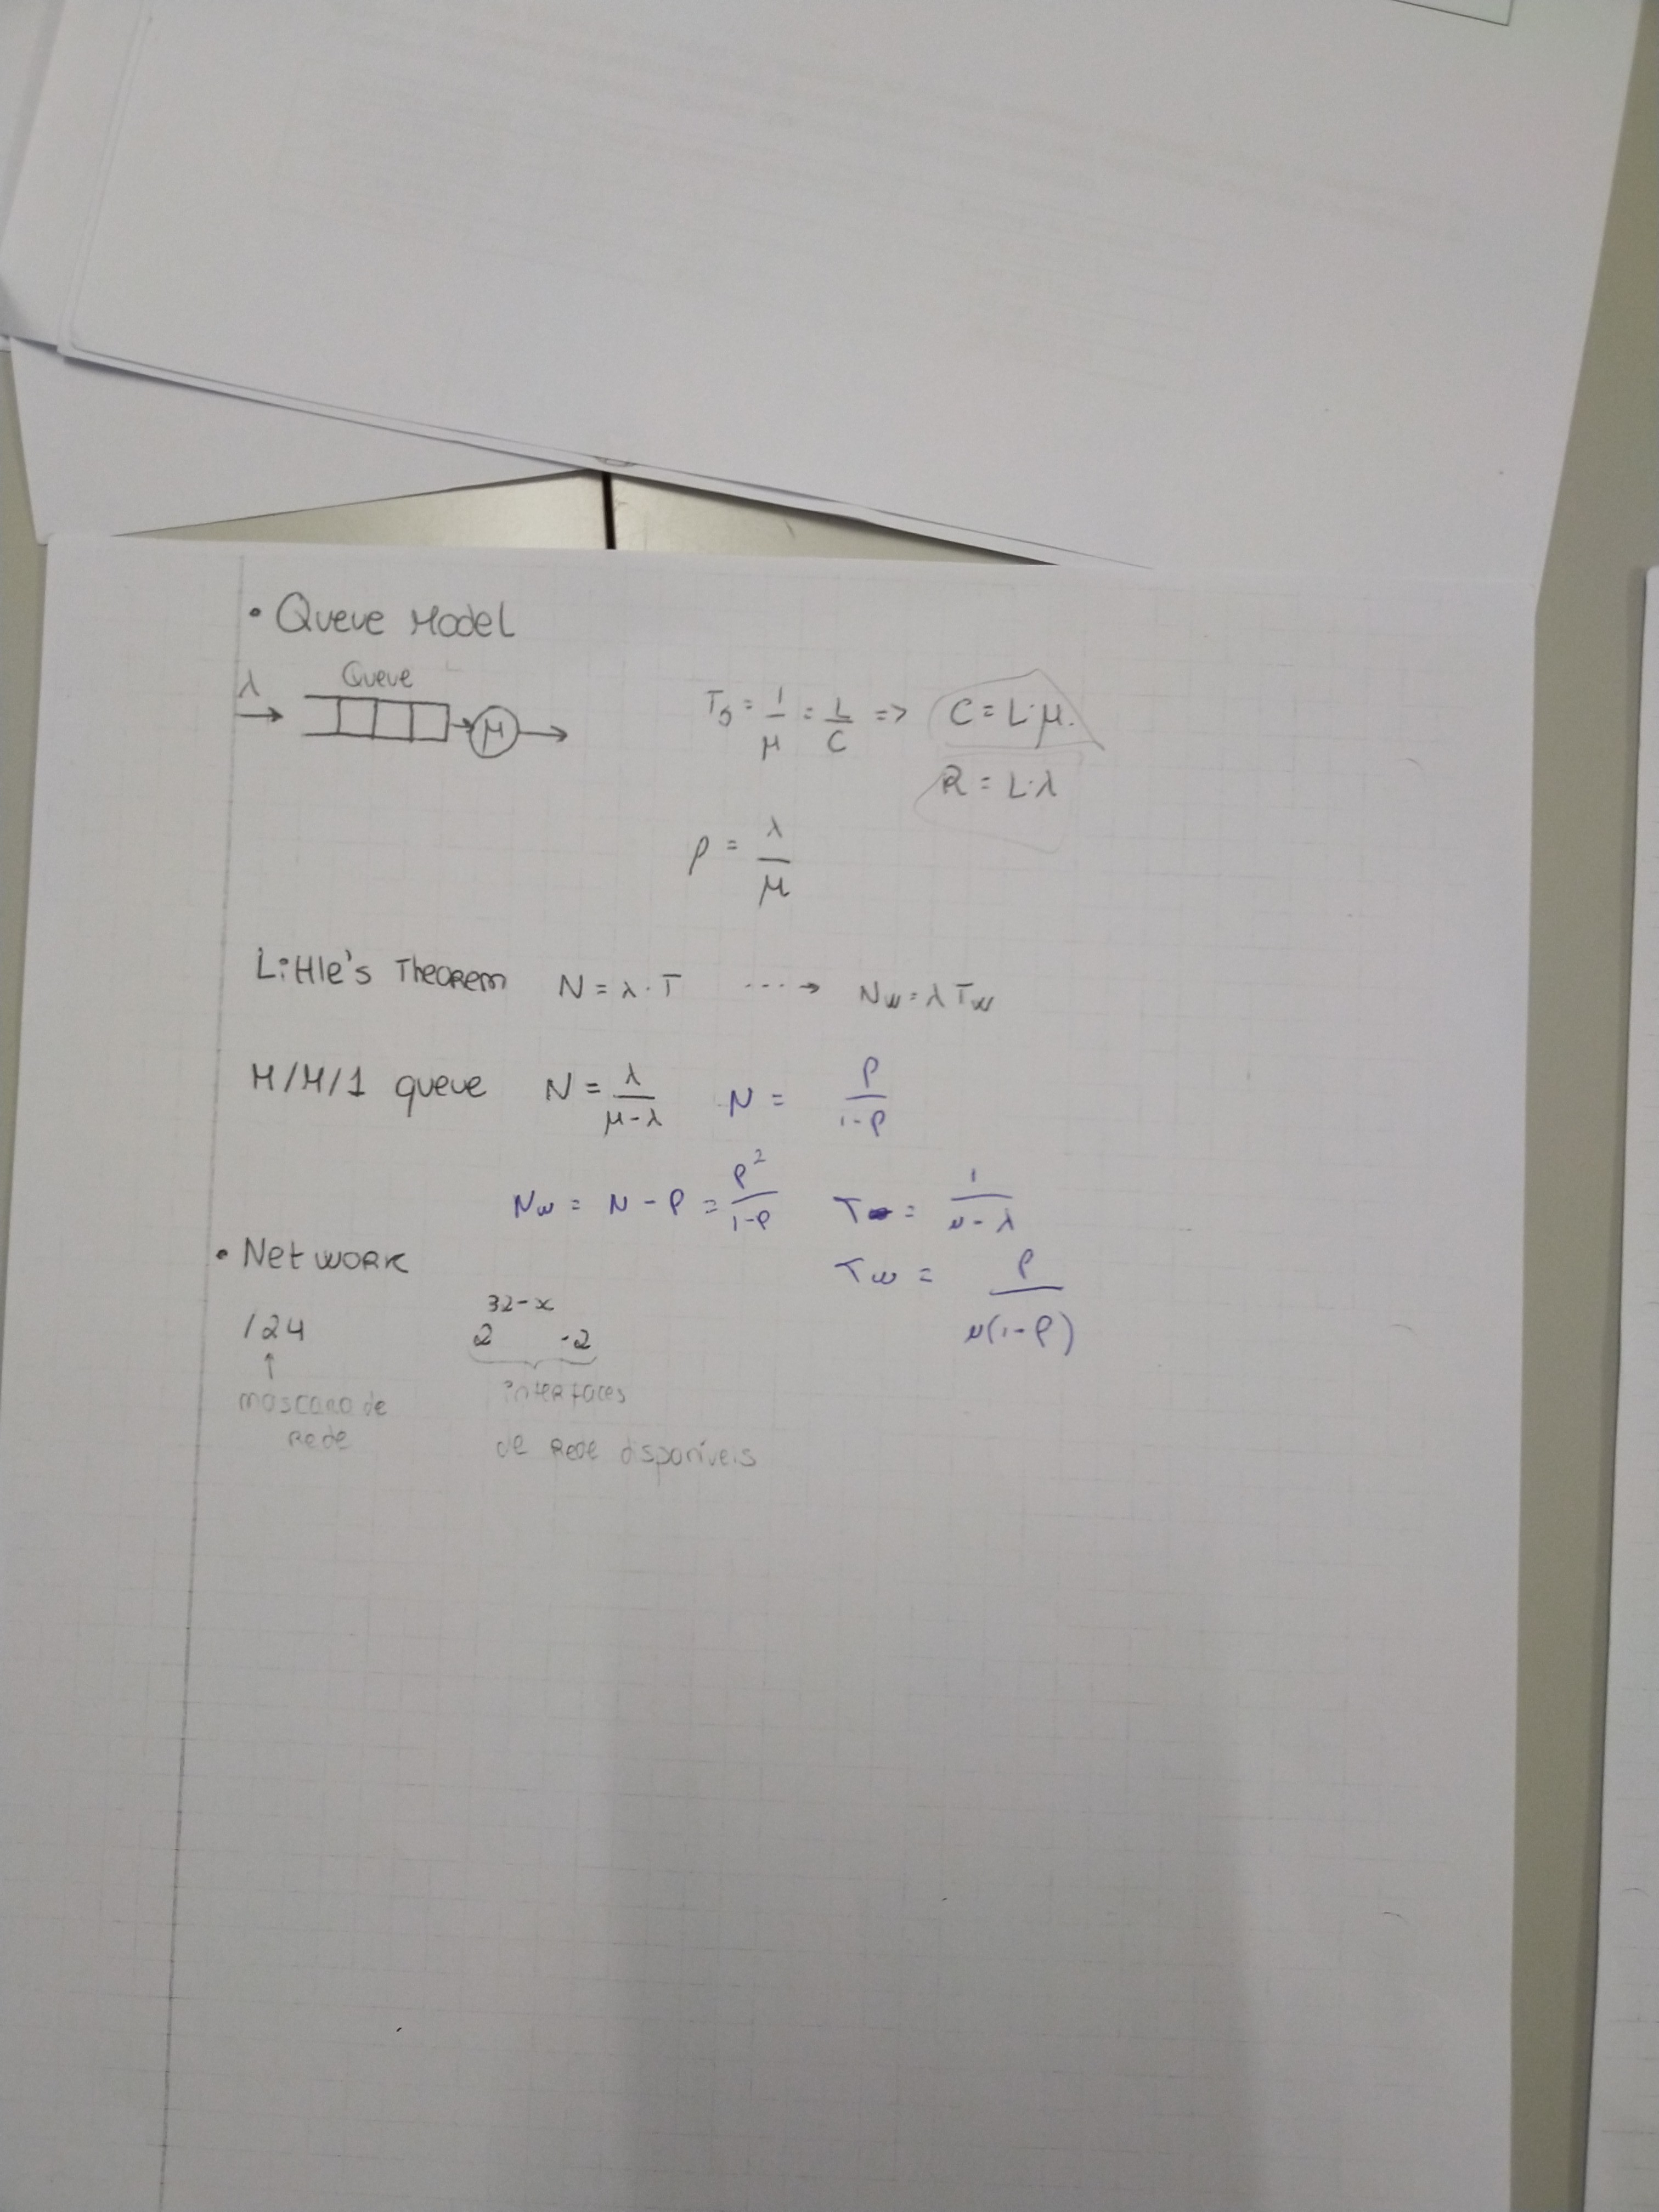 • Queue Model
λ Queue μ
Ts = 1/μ = L/C => C = L·μ.
R = L·λ
ρ = λ/μ
Little's Theorem N = λ·T ----> Nw = λ Tw
M/M/1 queue N = λ/(μ-λ) N = ρ/(1-ρ)
Nw = N - ρ = ρ²/(1-ρ) T = 1/(μ-λ)
• Network Tw = ρ/(μ(1-ρ))
/24 2^(32-x) -2
↑
mascara de rede
interfaces
de rede disponíveis